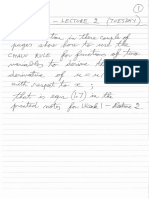 1
– LECTURE 2 (TUESDAY)
in these couple of
pages show how to use the
CHAIN RULE for functions of two
variables to derive the
derivative of u = u(
with respect to x ;
that is eqn (1.7) in the
printed notes for Week 1 – Lecture 2